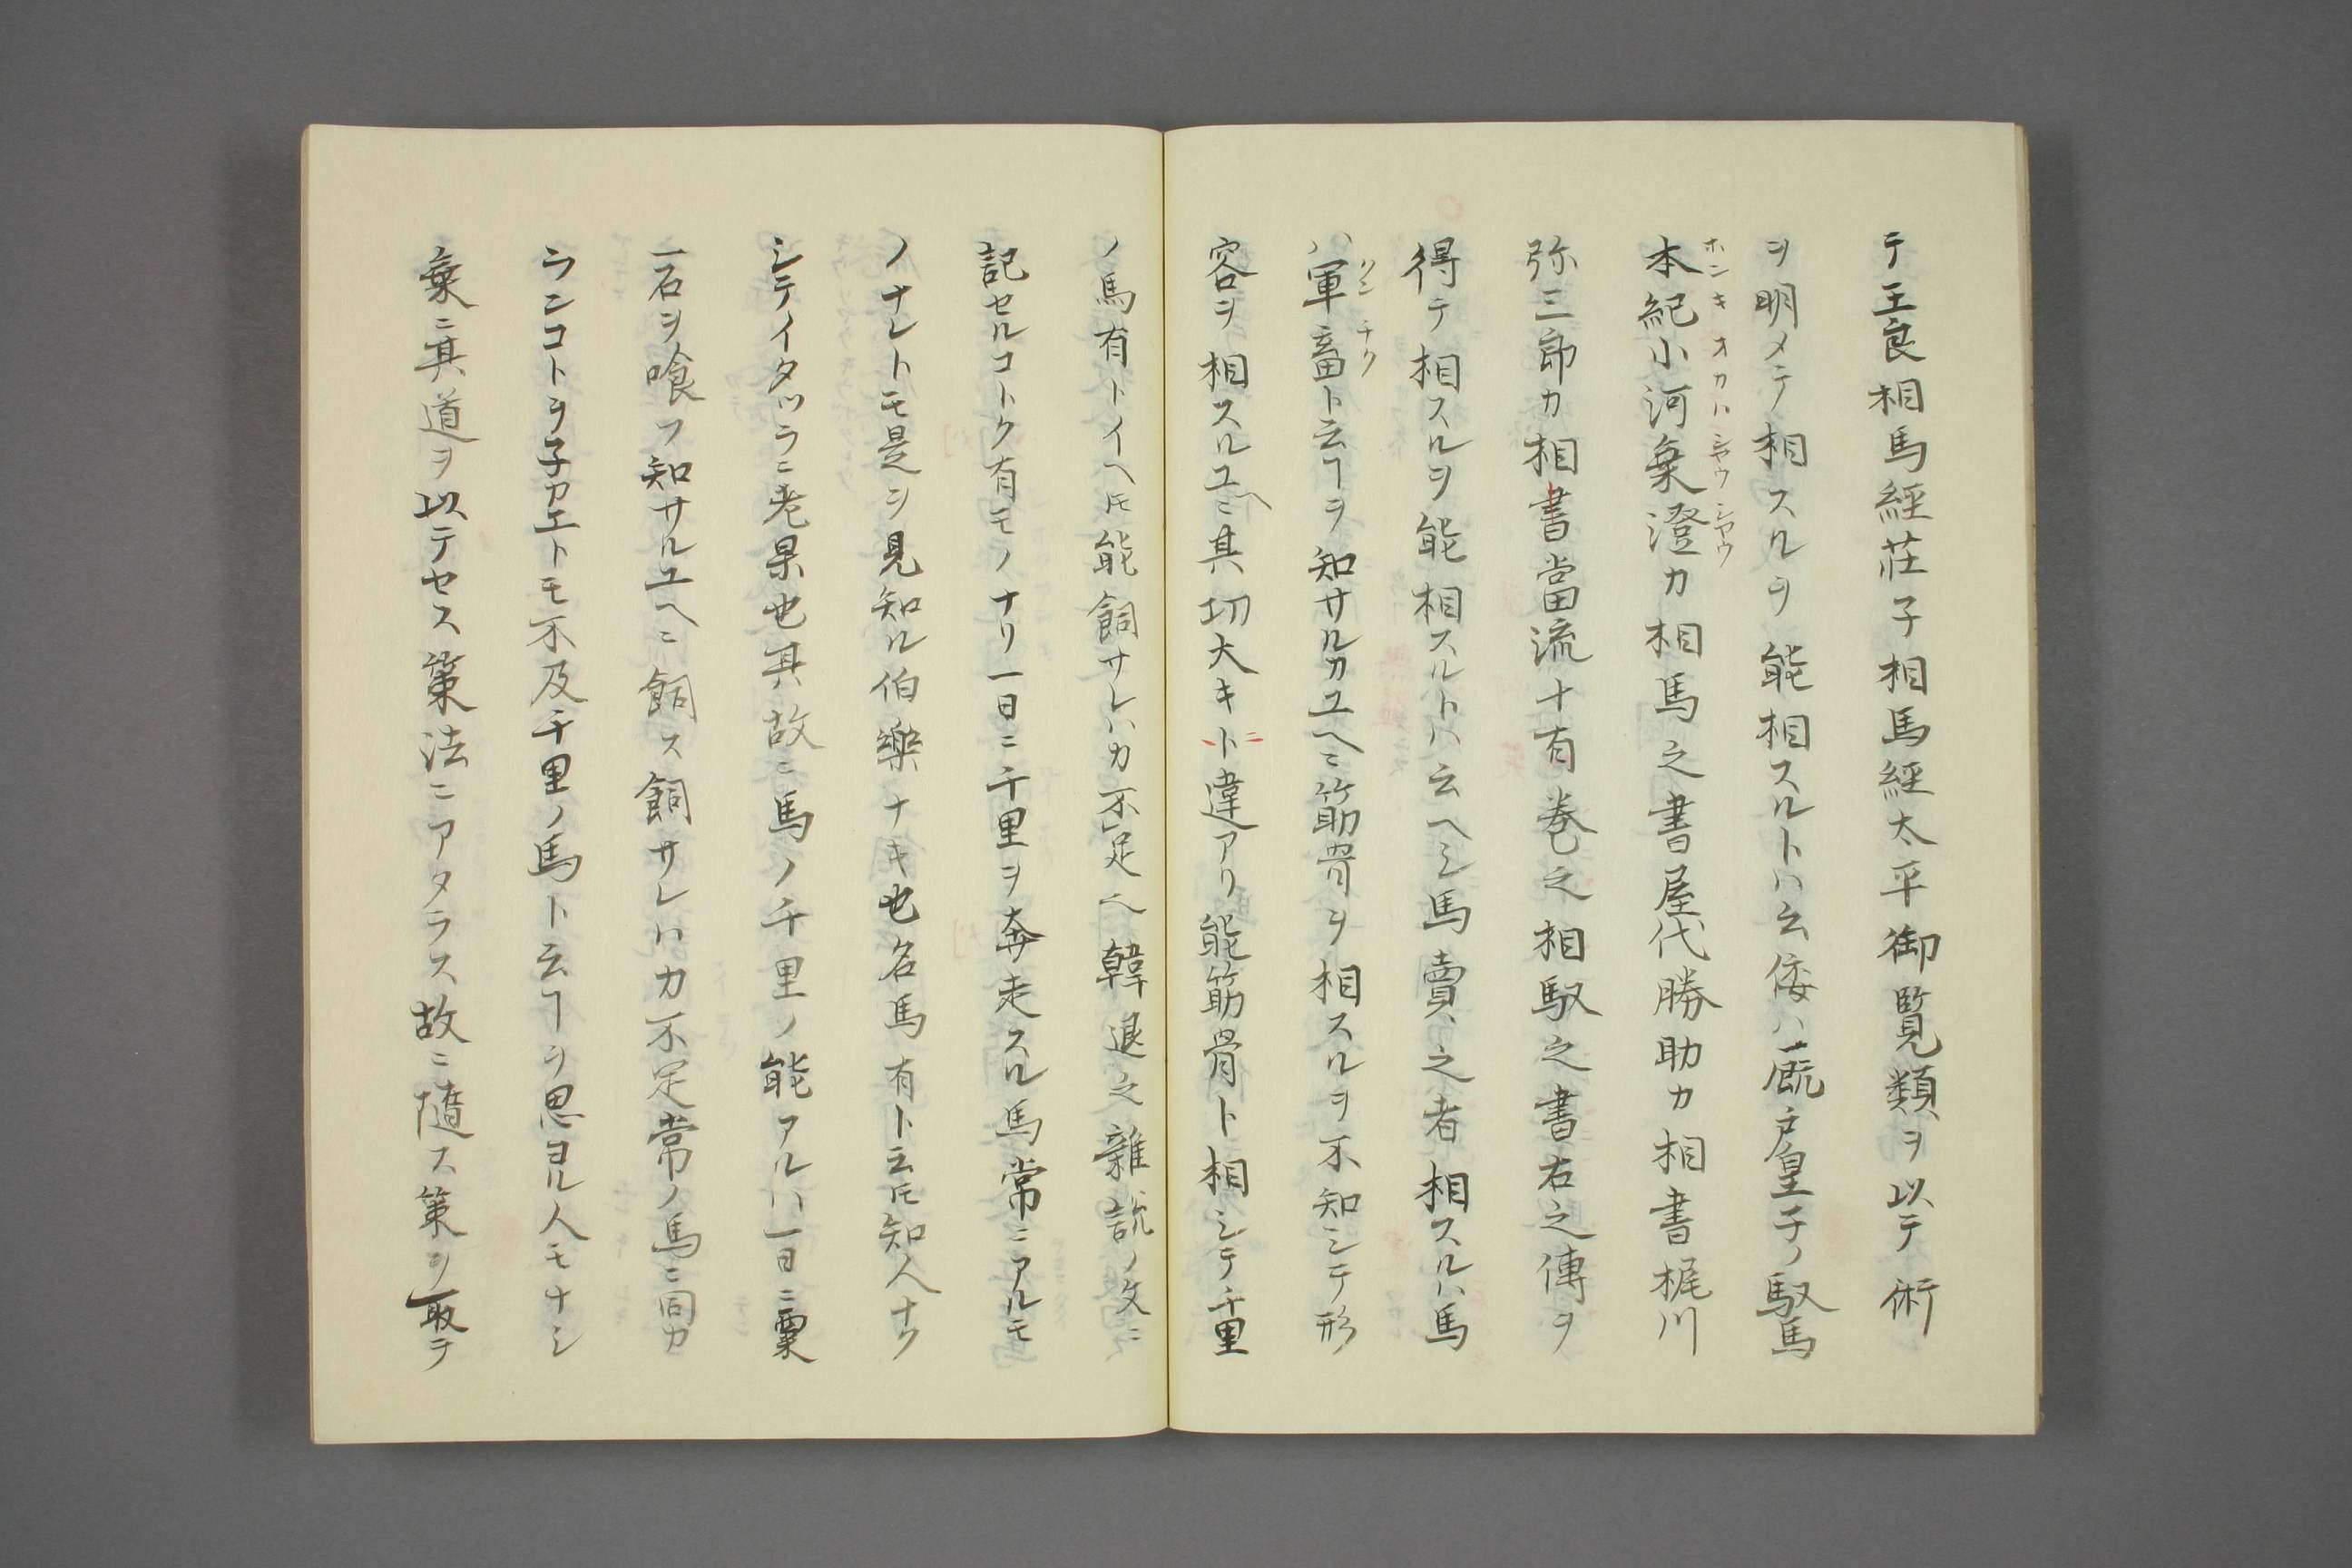 テ王良相馬經莊子相馬經太平御覧類ヲ以テ術
ヲ明メテ相スルヲ能相スルトハ云倭ハ廐戸皇子ノ馭馬
本紀小河棄澄カ相馬之書屋代勝助カ相書梶川
ホンキオカハシヤウシヤウ
弥三郎カ相書當流十有巻之相馭之書右之傳ヲ
得テ相スルヲ能相スルトハ云ヘシ馬賣之者相スルハ馬
ハ軍畜ト云ヿヲ知サルカユヘニ筋骨ヲ相スルヲ不知シテ形
クンチク
容ヲ相スルユヘニ其切大キニ違アリ能筋骨ト相シテ千里
ノ馬有トイヘ𪜈能飼サレハカ不足ヘ韓退之雜說ノ文ニ
記セルコトク有モノナリ一日ニ千里ヲ奔走スル馬常ニアルモ
ノナレトモ是ヲ見知ル伯樂ナキ也名馬有ト云𪜈知人ナク
シテイタツラニ老果也其故ニ馬ノ千里ノ能アルハ一日ニ粟
一石ヲ喰フ知サルユヘニ飼ス飼サレハカ不足常ノ馬ニ同カ
ランコトヲ子カエトモ不及千里ノ馬ト云ヿヲ思ヨル人モナシ
棄ニ其道ヲ以テセス策法ニアタラス故ニ隨ス策ヲ取テ